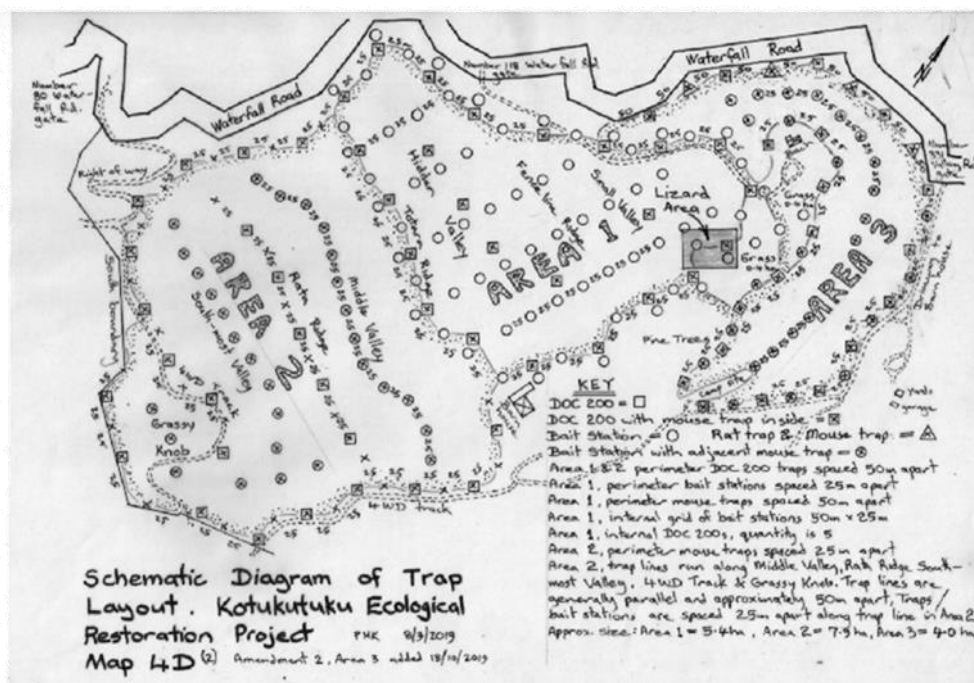 Waterfall Road
Number 118 Waterfall Rd.
gate
Number
80 Water-
fall Rd.
gate
Waterfall Road
N
Right of way
South boundary
Holden
Valley
Totara Ridge
Fence line Ridge
Small Valley
AREA 1
Lizard
Area
Grass
AREA 3
Pine Trees
Camp Site
AREA 2
South-most Valley
Rata Ridge
Middle Valley
4WD Track
Grassy
Knob
4WD track
House
Yards
garage
KEY
DOC 200 =
DOC 200 with mouse trap inside =
Bait Station = Rat trap & Mouse trap =
Bait Station with adjacent mouse trap =
Area 1 & 2 perimeter DOC 200 traps spaced 50m apart
Area 1, perimeter bait stations spaced 25m apart
Area 1, perimeter mouse traps spaced 50m apart
Area 1, internal grid of bait stations 50m x 25m
Area 1, internal DOC 200s, quantity is 5
Area 2, perimeter mouse traps spaced 25m apart
Area 2, trap lines run along Middle Valley, Rata Ridge South-
most Valley, 4WD Track & Grassy Knob. Trap lines are
generally parallel and approximately 50m apart, Traps/
bait stations are spaced 25m apart along trap line in Area 2
Approx. size: Area 1 = 5.4ha, Area 2 = 7.9ha, Area 3 = 4.0ha
Schematic Diagram of Trap
Layout. Kotukutuku Ecological
Restoration Project PHK 8/3/2019
Map 4D (2) Amendment 2, Area 3 added 13/10/2019